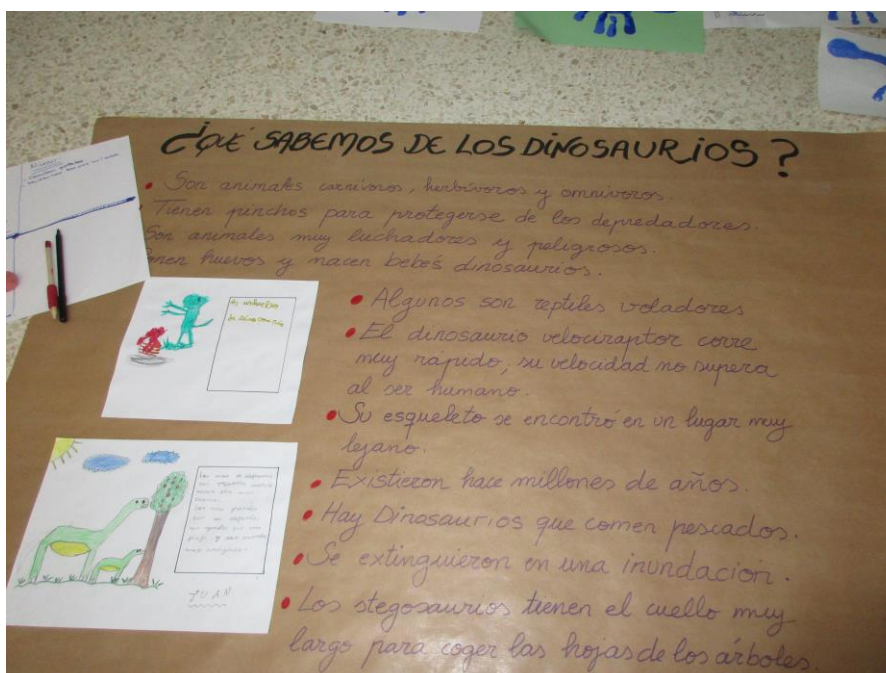 ¿QUÉ SABEMOS DE LOS DINOSAURIOS?
• Son animales carnívoros, herbívoros y omnívoros.
• Tienen pinchos para protegerse de los depredadores.
Son animales muy luchadores y peligrosos.
Ponen huevos y nacen bebés dinosaurios.
• Algunos son reptiles voladores
• El dinosaurio velociraptor corre
muy rápido, su velocidad no supera
al ser humano.
• Su esqueleto se encontró en un lugar muy
lejano.
• Existieron hace millones de años.
• Hay Dinosaurios que comen pescados.
• Se extinguieron en una inundación.
• Los stegosaurios tienen el cuello muy
largo para coger las hojas de los árboles.
JUAN